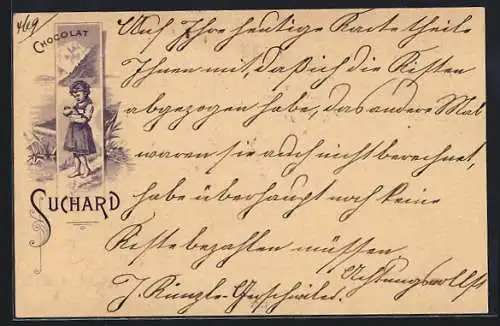 469
CHOCOLAT
SUCHARD
Auf Ihre heutige Karte theile
Ihnen mit, daß ich die Kisten
abgezogen habe, das andere Mal
waren sie auch nicht berechnet,
habe überhaupt noch keine
Kiste bezahlen müssen
Achtungsvollst
J. Künzle